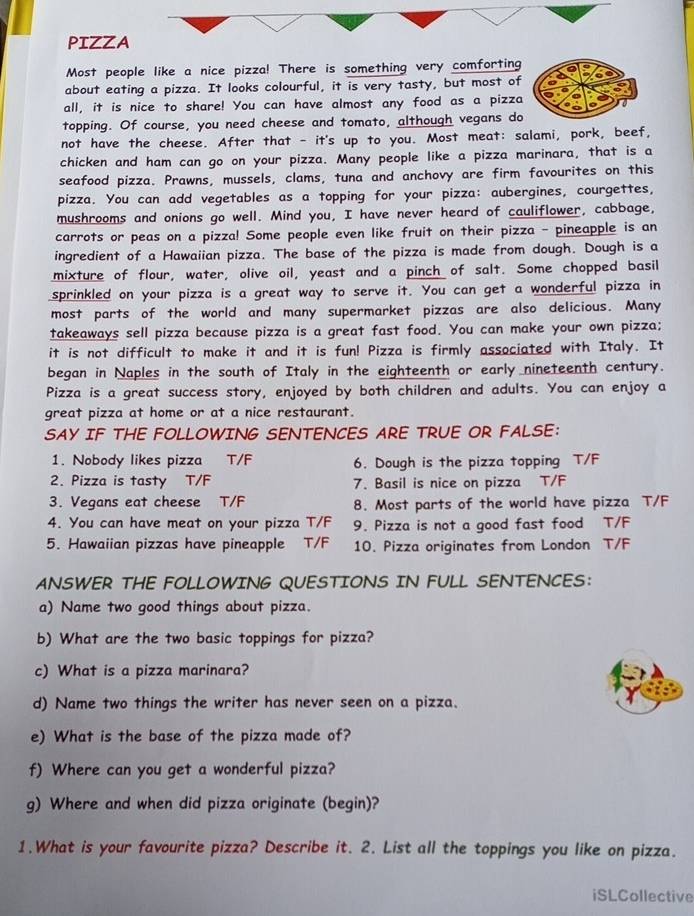 PIZZA
Most people like a nice pizza! There is something very comforting
about eating a pizza. It looks colourful, it is very tasty, but most of
all, it is nice to share! You can have almost any food as a pizza
topping. Of course, you need cheese and tomato, although vegans do
not have the cheese. After that - it's up to you. Most meat: salami, pork, beef,
chicken and ham can go on your pizza. Many people like a pizza marinara, that is a
seafood pizza. Prawns, mussels, clams, tuna and anchovy are firm favourites on this
pizza. You can add vegetables as a topping for your pizza: aubergines, courgettes,
mushrooms and onions go well. Mind you, I have never heard of cauliflower, cabbage,
carrots or peas on a pizza! Some people even like fruit on their pizza - pineapple is an
ingredient of a Hawaiian pizza. The base of the pizza is made from dough. Dough is a
mixture of flour, water, olive oil, yeast and a pinch of salt. Some chopped basil
sprinkled on your pizza is a great way to serve it. You can get a wonderful pizza in
most parts of the world and many supermarket pizzas are also delicious. Many
takeaways sell pizza because pizza is a great fast food. You can make your own pizza;
it is not difficult to make it and it is fun! Pizza is firmly associated with Italy. It
began in Naples in the south of Italy in the eighteenth or early nineteenth century.
Pizza is a great success story, enjoyed by both children and adults. You can enjoy a
great pizza at home or at a nice restaurant.
SAY IF THE FOLLOWING SENTENCES ARE TRUE OR FALSE:
1. Nobody likes pizza T/F
2. Pizza is tasty T/F
3. Vegans eat cheese T/F
4. You can have meat on your pizza T/F
5. Hawaiian pizzas have pineapple T/F
6. Dough is the pizza topping T/F
7. Basil is nice on pizza T/F
8. Most parts of the world have pizza T/F
9. Pizza is not a good fast food T/F
10. Pizza originates from London T/F
ANSWER THE FOLLOWING QUESTIONS IN FULL SENTENCES:
a) Name two good things about pizza.
b) What are the two basic toppings for pizza?
c) What is a pizza marinara?
d) Name two things the writer has never seen on a pizza.
e) What is the base of the pizza made of?
f) Where can you get a wonderful pizza?
g) Where and when did pizza originate (begin)?
1.What is your favourite pizza? Describe it. 2. List all the toppings you like on pizza.
iSLCollective